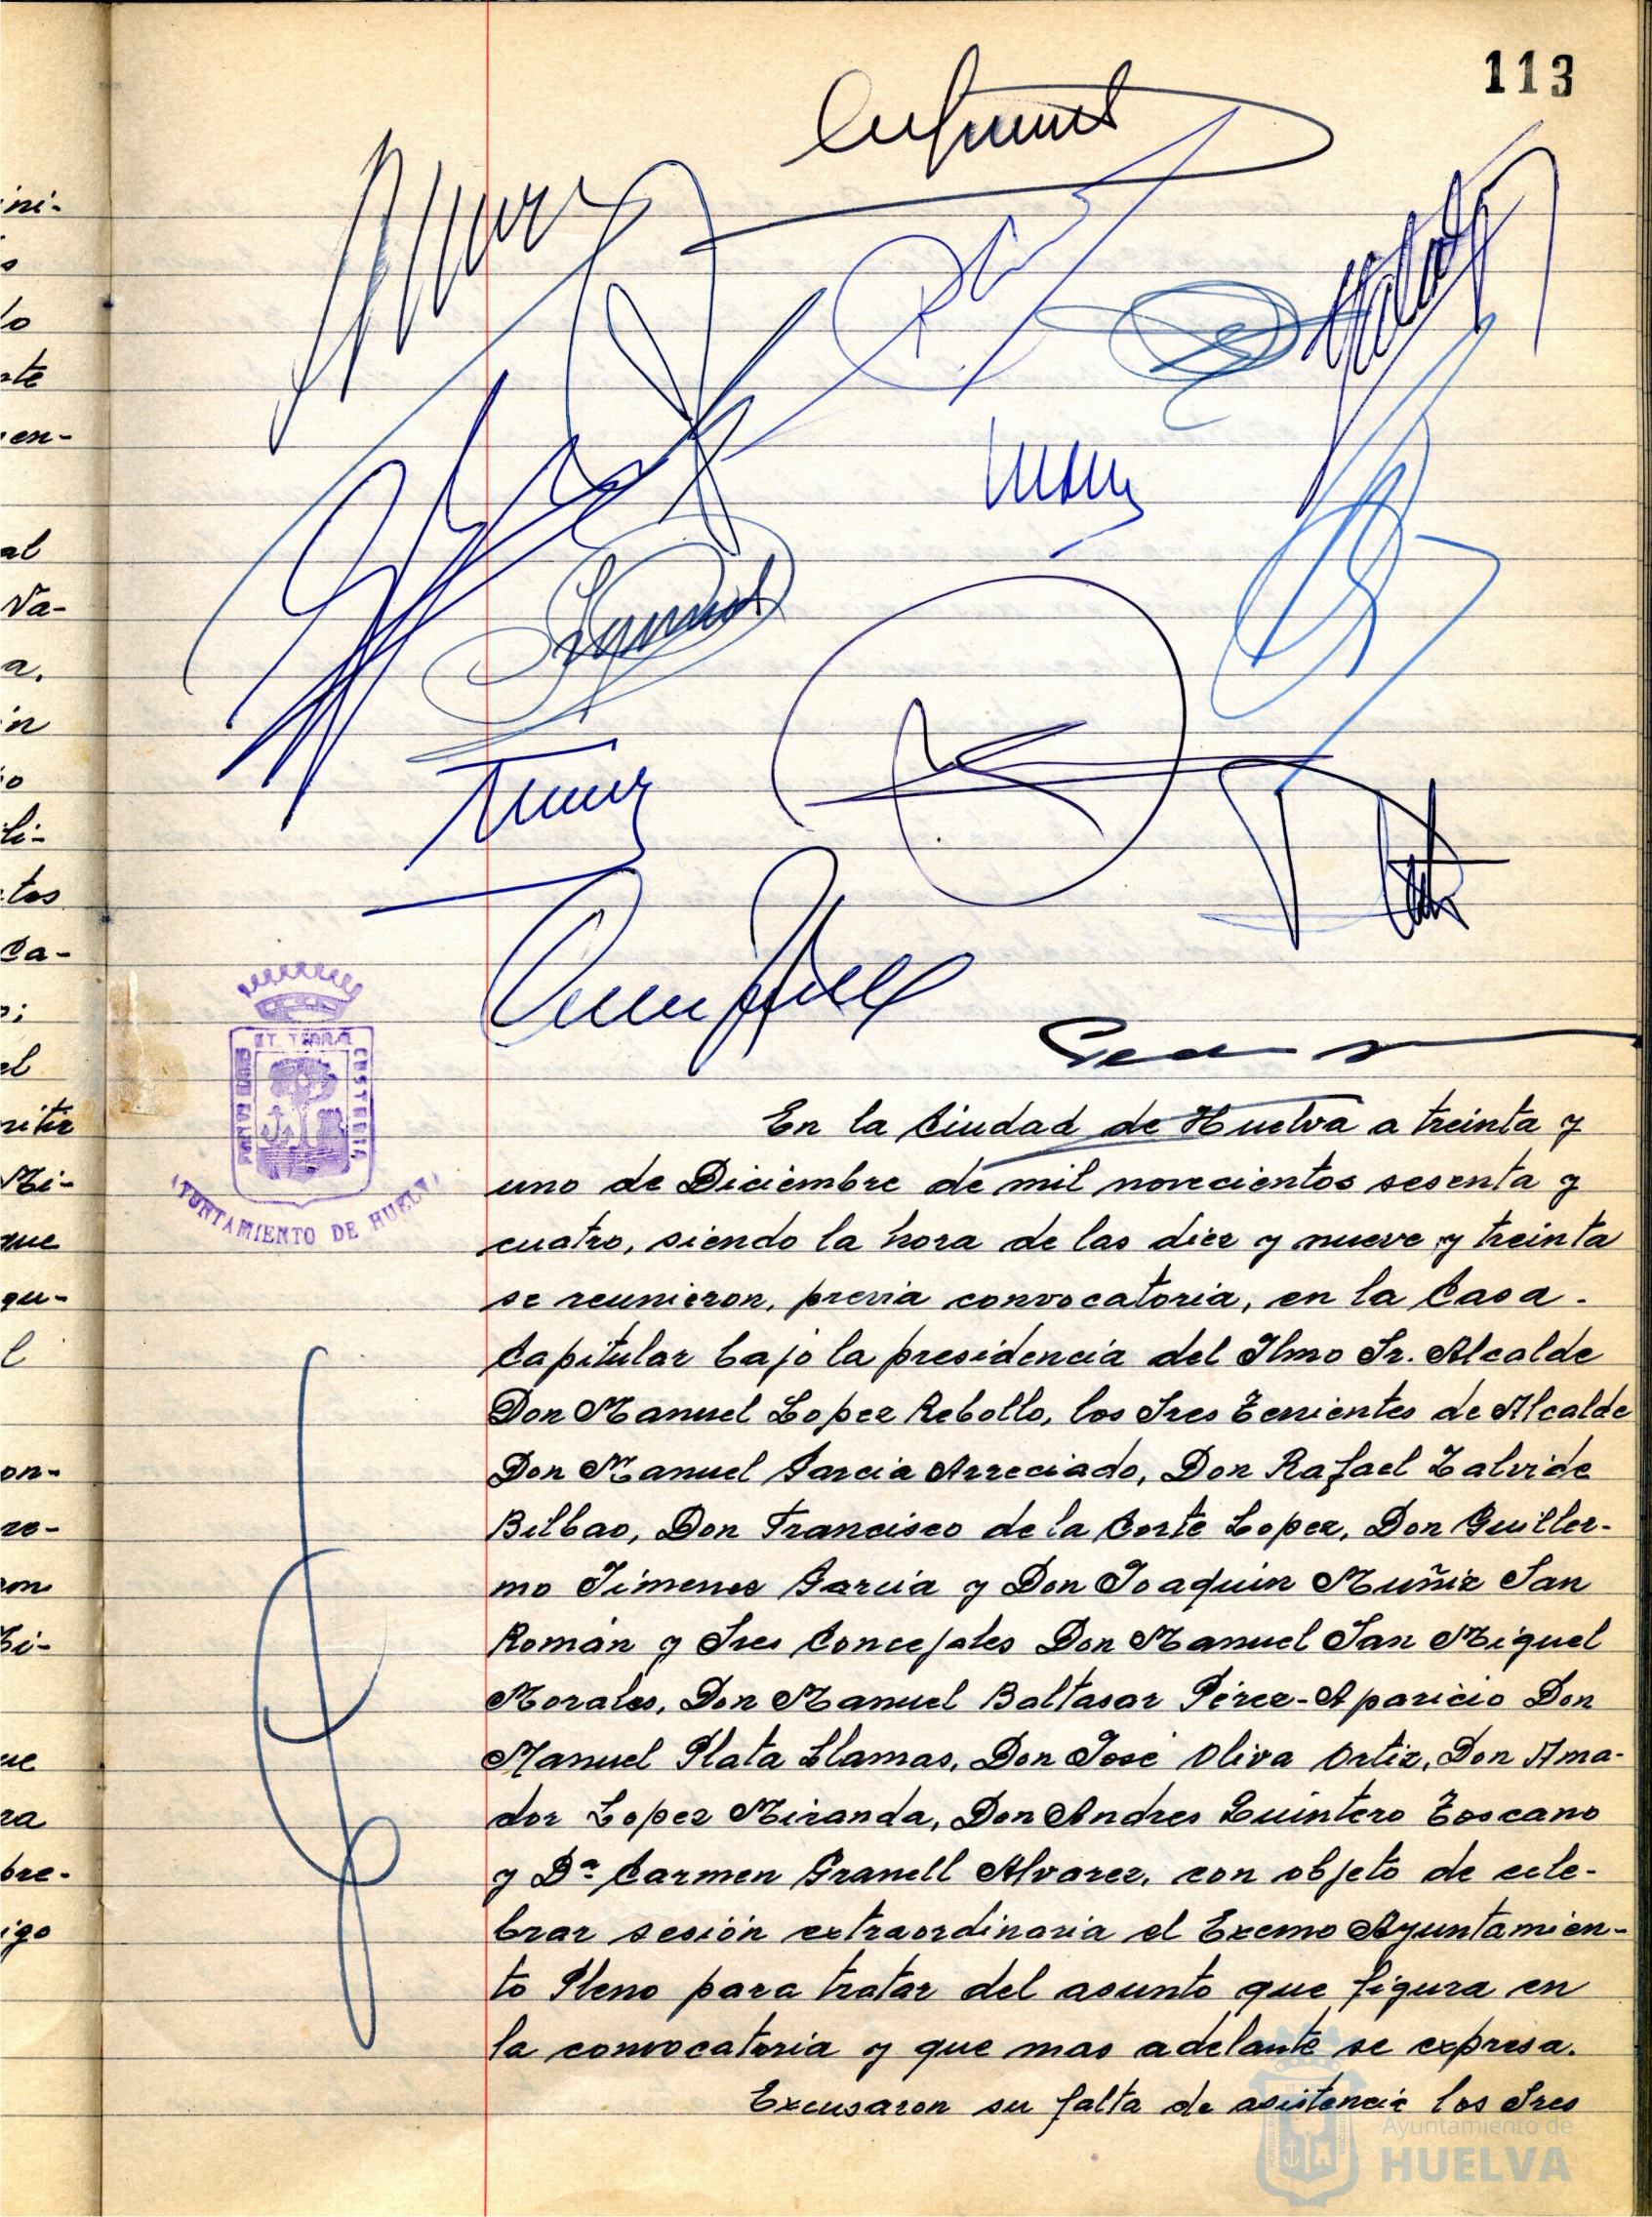 113
ini-
o
lo
te
en-
al
Va-
a.
in
io
li-
tos
Ca-
el
mitir
Mi-
que
gu-
l
on-
ro-
ue
ra
bre-
igo
ET TERRÆ
PORTUS MARIS
CUSTODIA
AYUNTAMIENTO DE HUELVA
En la Ciudad de Huelva a treinta y
uno de Diciembre de mil novecientos sesenta y
cuatro, siendo la hora de las diez y nueve y treinta
se reunieron, previa convocatoria, en la Casa-
Capitular bajo la presidencia del Ilmo Sr. Alcalde
Don Manuel Lopez Rebollo, los Sres Tenientes de Alcalde
Don Manuel Garcia Arreciado, Don Rafael Zalvide
Bilbao, Don Francisco de la Corte Lopez, Don Guiller-
mo Jimenez Garcia y Don Joaquin Muñiz San
Román y Sres Concejales Don Manuel San Miguel
Morales, Don Manuel Baltasar Pérez-Aparicio Don
Manuel Plata Llamas, Don José Oliva Ortiz, Don Ama-
dor Lopez Miranda, Don Andres Quintero Toscano
y Dª Carmen Granell Alvarez, con objeto de cele-
brar sesión extraordinaria el Excmo Ayuntamien-
to Pleno para tratar del asunto que figura en
la convocatoria y que mas adelante se expresa.
Excusaron su falta de asistencia los Sres
Ayuntamiento de
HUELVA